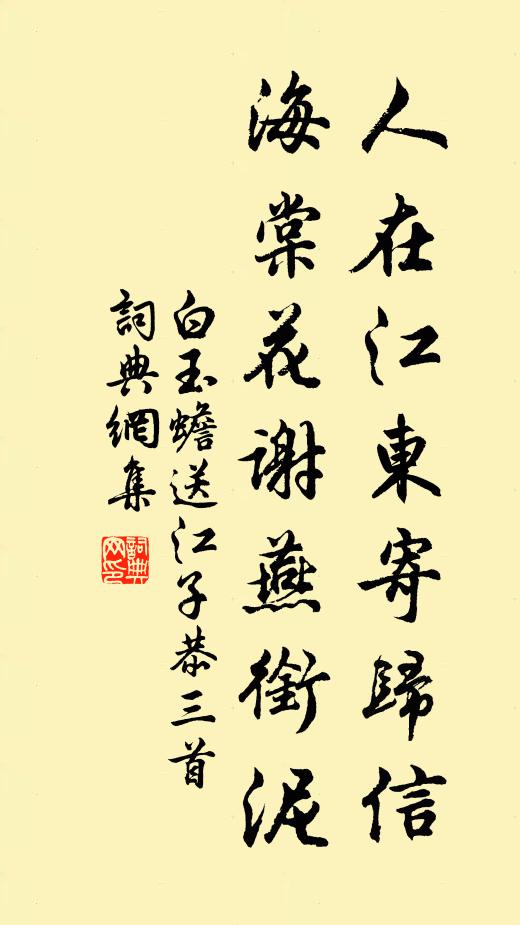 人在江東寄歸信
海棠花謝燕銜泥
白玉蟾送江子恭三首
詞典網集
詞典網印